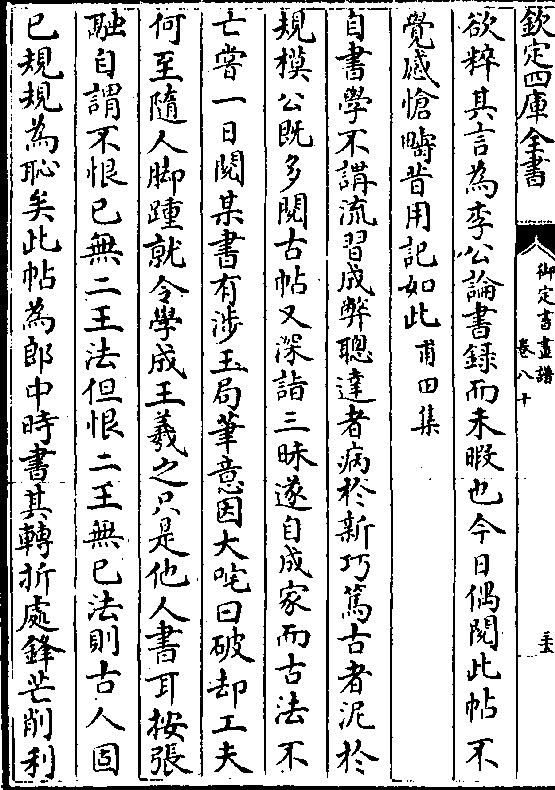 欽定四庫全書
御定書畫譜
卷八十
欲粹其言為李公論書録而未暇也今日偶閱此帖不
覺感愴疇昔用記如此甫田集
自書學不講流習成弊聰達者病於新巧篤古者泥於
規模公既多閱古帖又深詣三昧遂自成家而古法不
亡嘗一日閱某書有涉玉局筆意因大咤曰破却工夫
何至隨人脚踵就令學成王羲之只是他人書耳按張
融自謂不恨已無二王法但恨二王無已法則古人固
已規規為恥矣此帖為郎中時書其轉折處鋒芒削利